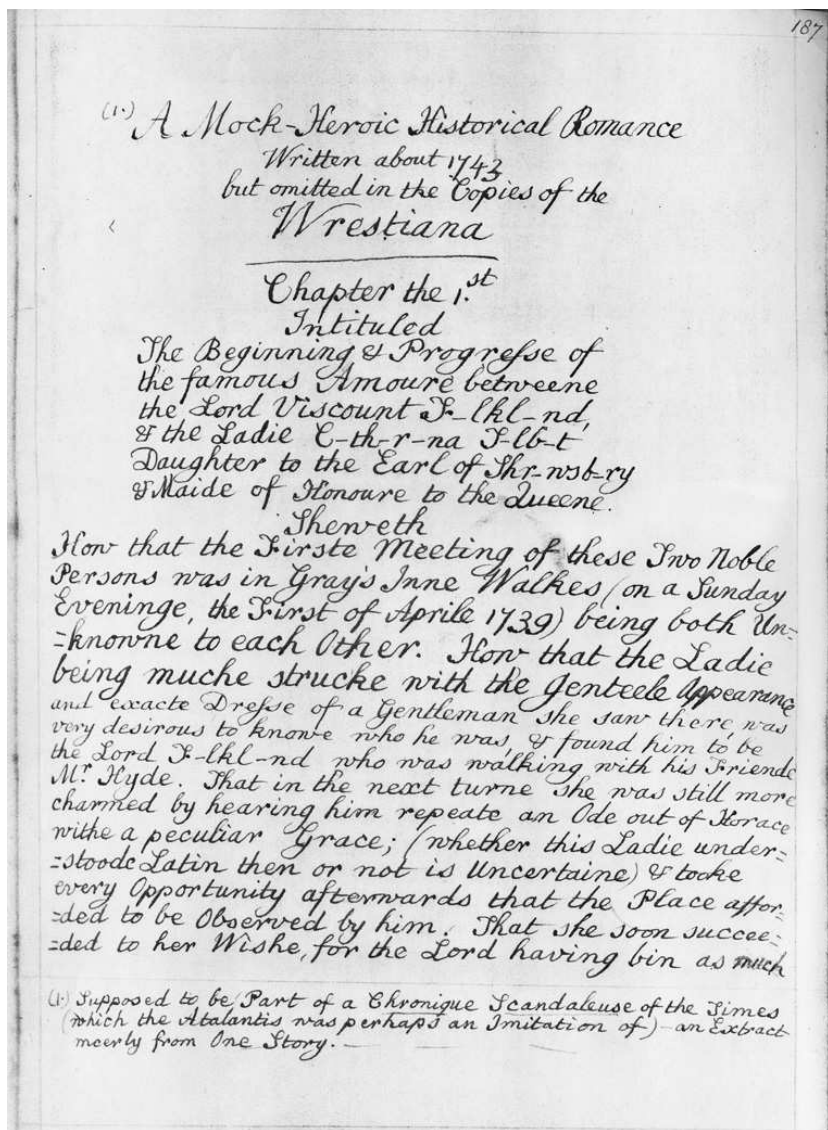 187
(1.) A Mock-Heroic Historical Romance
Written about 1743
but omitted in the Copies of the
Wrestiana
Chapter the 1.st
Intituled
The Beginning & Progresse of
the famous Amoure betweene
the Lord Viscount F-lkl-nd,
& the Ladie C-th-r-na T-lb-t
Daughter to the Earl of Shr-wsb-ry
& Maide of Honoure to the Queene.
Sheweth
How that the Firste Meeting of these Two Noble
Persons was in Gray's Inne Walkes (on a Sunday
Eveninge, the First of Aprile 1739) being both Un=
=knowne to each Other. How that the Ladie
being muche strucke with the Genteele Appearance
and exacte Dresse of a Gentleman she saw there, was
very desirous to knowe who he was, & found him to be
the Lord F-lkl-nd who was walking with his Friende
Mr. Hyde. That in the next turne she was still more
charmed by hearing him repeate an Ode out of Horace
withe a peculiar Grace; (whether this Ladie under=
=stoode Latin then or not is Uncertaine) & tooke
every Opportunity afterwards that the Place affor=
=ded to be Observed by him. That she soon succee=
=ded to her Wishe, for the Lord having bin as much
(1.) Supposed to be Part of a Chronique Scandaleuse of the Times
(which the Atalantis was perhaps an Imitation of) - an Extract
meerly from One Story.